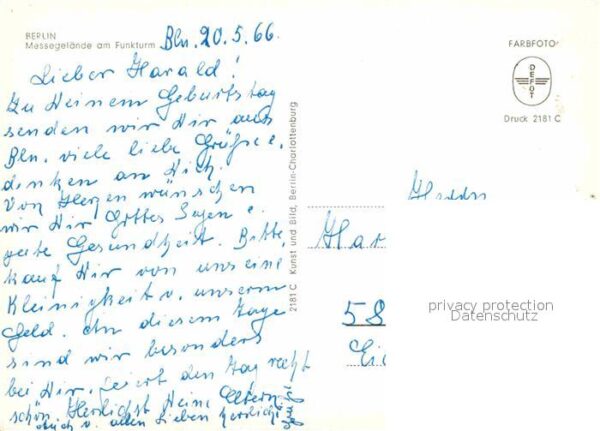 BERLIN
Messegelände am Funkturm
Bln. 20.5.66.
Lieber Harald!
Zu Deinem Geburtstag
senden wir Dir aus
Bln. viele liebe Grüße u.
denken an Dich.
Von Herzen wünschen
wir Dir Gottes Segen u.
gute Gesundheit. Bitte
kauf Dir von uns eine
Kleinigkeit v. unserm
Geld. An diesem Tage
sind wir besonders
bei Dir. Feiert den Tag recht
schön. Herzlichst Deine Eltern
Auch v. allen Lieben herzliche
2181 C Kunst und Bild, Berlin-Charlottenburg
FARBFOTO
DEFOT
Druck 2181 C
Herrn
Har
58
privacy protection
Datenschutz